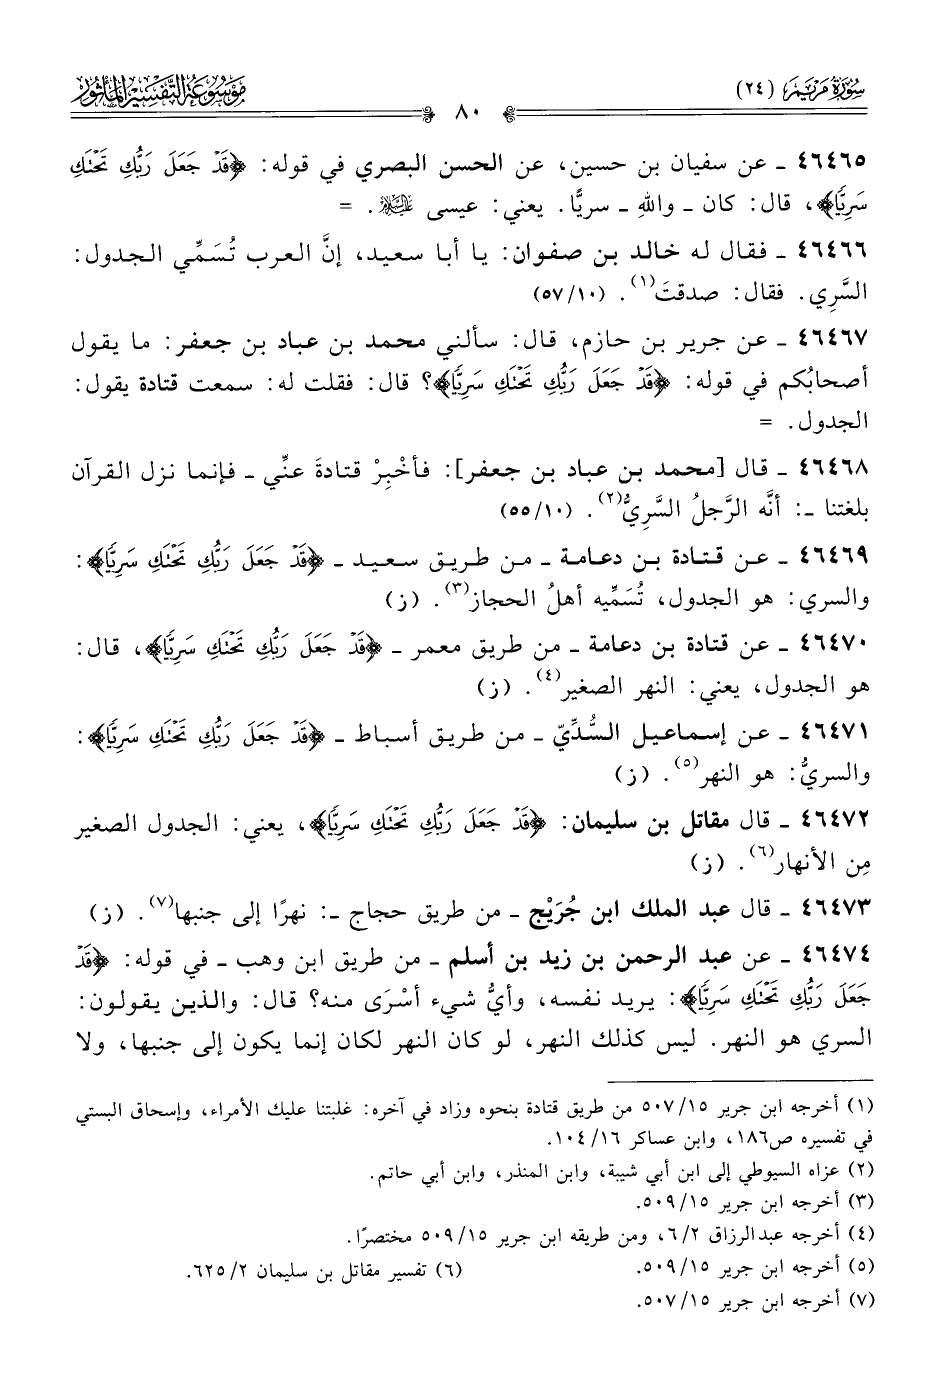 سُورَةُ مَرْيَمَ (٢٤)
٨٠
مَوْسُوعَةُ التَّفْسِيرِ المَأْثُورِ
٤٦٤٦٥ ـ عن سفيان بن حسين، عن الحسن البصري في قوله: ﴿قَدْ جَعَلَ رَبُّكِ تَحْتَكِ
سَرِيًّا﴾، قال: كان ـ واللهِ ـ سريًّا. يعني: عيسى عليه السلام. =
٤٦٤٦٦ ـ فقال له خالد بن صفوان: يا أبا سعيد، إنَّ العرب تُسَمِّي الجدول:
السَّرِي. فقال: صدقتَ(١). (١٠/ ٥٧)
٤٦٤٦٧ ـ عن جرير بن حازم، قال: سألني محمد بن عباد بن جعفر: ما يقول
أصحابُكم في قوله: ﴿قَدْ جَعَلَ رَبُّكِ تَحْتَكِ سَرِيًّا﴾؟ قال: فقلت له: سمعت قتادة يقول:
الجدول. =
٤٦٤٦٨ ـ قال [محمد بن عباد بن جعفر]: فأخْبِرْ قتادةَ عنِّي ـ فإنما نزل القرآن
بلغتنا ـ: أنَّه الرَّجلُ السَّرِيُّ(٢). (١٠/ ٥٥)
٤٦٤٦٩ ـ عن قتادة بن دعامة ـ من طريق سعيد ـ ﴿قَدْ جَعَلَ رَبُّكِ تَحْتَكِ سَرِيًّا﴾:
والسري: هو الجدول، تُسَمِّيه أهلُ الحجاز(٣). (ز)
٤٦٤٧٠ ـ عن قتادة بن دعامة ـ من طريق معمر ـ ﴿قَدْ جَعَلَ رَبُّكِ تَحْتَكِ سَرِيًّا﴾، قال:
هو الجدول، يعني: النهر الصغير(٤). (ز)
٤٦٤٧١ ـ عن إسماعيل السُّدِّيّ ـ من طريق أسباط ـ ﴿قَدْ جَعَلَ رَبُّكِ تَحْتَكِ سَرِيًّا﴾:
والسريُّ: هو النهر(٥). (ز)
٤٦٤٧٢ ـ قال مقاتل بن سليمان: ﴿قَدْ جَعَلَ رَبُّكِ تَحْتَكِ سَرِيًّا﴾، يعني: الجدول الصغير
مِن الأنهار(٦). (ز)
٤٦٤٧٣ ـ قال عبد الملك ابن جُرَيْج ـ من طريق حجاج ـ: نهرًا إلى جنبها(٧). (ز)
٤٦٤٧٤ ـ عن عبد الرحمن بن زيد بن أسلم ـ من طريق ابن وهب ـ في قوله: ﴿قَدْ
جَعَلَ رَبُّكِ تَحْتَكِ سَرِيًّا﴾: يريد نفسه، وأيُّ شيء أسْرَى منه؟ قال: والذين يقولون:
السري هو النهر. ليس كذلك النهر، لو كان النهر لكان إنما يكون إلى جنبها، ولا
(١) أخرجه ابن جرير ١٥/ ٥٠٧ من طريق قتادة بنحوه وزاد في آخره: غلبتنا عليك الأمراء، وإسحاق البستي
في تفسيره ص١٨٦، وابن عساكر ١٦/ ١٠٤.
(٢) عزاه السيوطي إلى ابن أبي شيبة، وابن المنذر، وابن أبي حاتم.
(٣) أخرجه ابن جرير ١٥/ ٥٠٩.
(٤) أخرجه عبدالرزاق ٢/ ٦، ومن طريقه ابن جرير ١٥/ ٥٠٩ مختصرًا.
(٥) أخرجه ابن جرير ١٥/ ٥٠٩.
(٦) تفسير مقاتل بن سليمان ٢/ ٦٢٥.
(٧) أخرجه ابن جرير ١٥/ ٥٠٧.